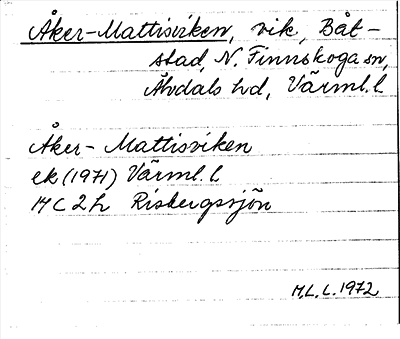 Åker-Mattisviken, vik, Båt-
stad, N. Finnskoga sn,
Älvdals hd, Värml. l
Åker-Mattisviken
ek (1971) Värml. l
17 C 2 h Risbergssjön
M.L.L. 1972